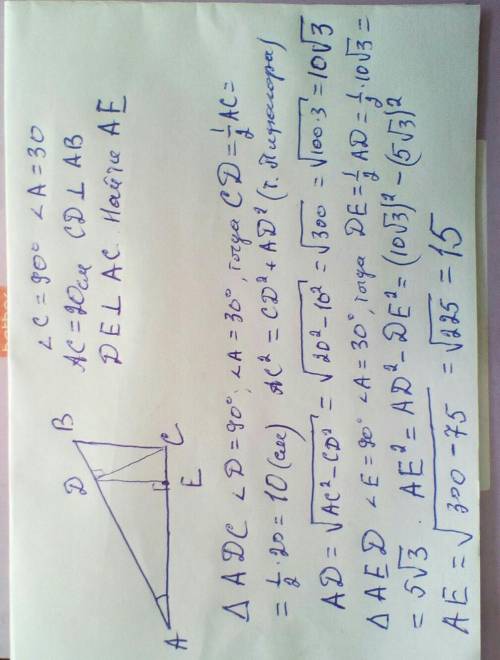 ∠C=90° ∠A=30
AC=20см CD⊥AB
DE⊥AC Найти AE
B
D
A
E
C
△ADC ∠D=90°; ∠A=30°, тогда CD=½AC=
=½·20=10(см) AC²=CD²+AD² (т. Пифагора)
AD=√AC²-CD² =√20²-10² =√300 =√100·3 =10√3
△AED ∠E=90° ∠A=30°, тогда DE=½AD=½·10√3=
=5√3. AE²=AD²-DE²=(10√3)²-(5√3)²
AE=√300-75 =√225=15